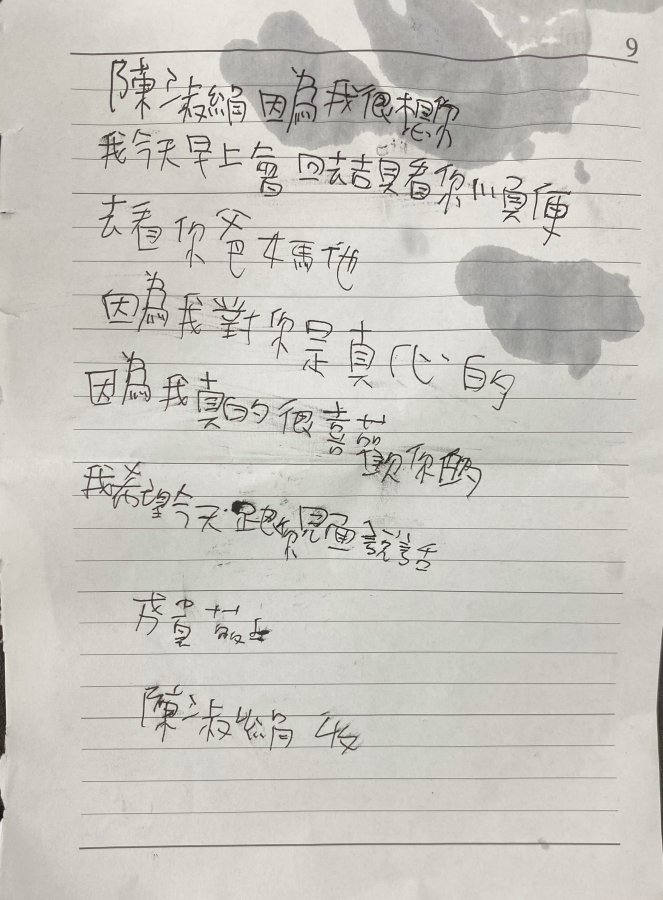 9
陳淑絹因為我很想你
我今天早上會回去看你順便
去看你爸媽他
因為我對你是真心的
因為我真的很喜歡你的
我希望今天跟你見面說話
陳淑絹 收